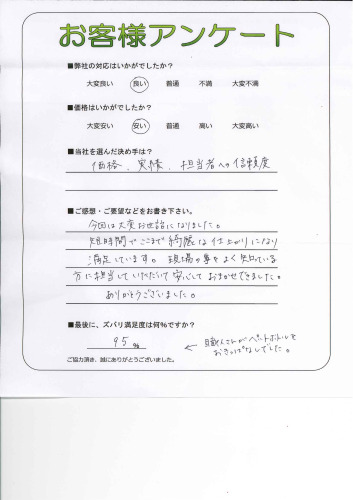 お客様アンケート
■弊社の対応はいかがでしたか？
大変良い 良い 普通 不満 大変不満
■価格はいかがでしたか？
大変安い 安い 普通 高い 大変高い
■当社を選んだ決め手は？
価格、実績、担当者への信頼度
■ご感想・ご要望などをお書き下さい。
今回は大変お世話になりました。
短時間でここまで綺麗な仕上がりになり
満足しています。現場の事をよく知っている
方に担当していただいて安心しておまかせできました。
ありがとうございました。
■最後に、ズバリ満足度は何％ですか？
95％
← 職人さんがペットボトルを
おきっぱなしでした。
ご協力頂き、誠にありがとうございました。